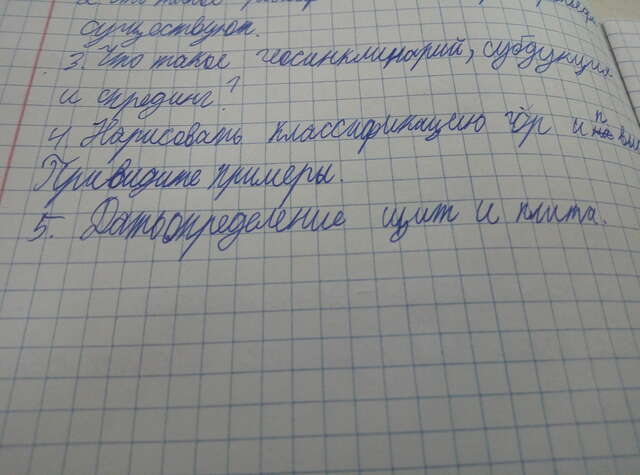 2. Что такое
существуют.
3. Что такое геосинклинарий, субдукция
и спрединг?
4. Нарисовать классификацию и
Привидите примеры.
5. Дать определение щит и плита.